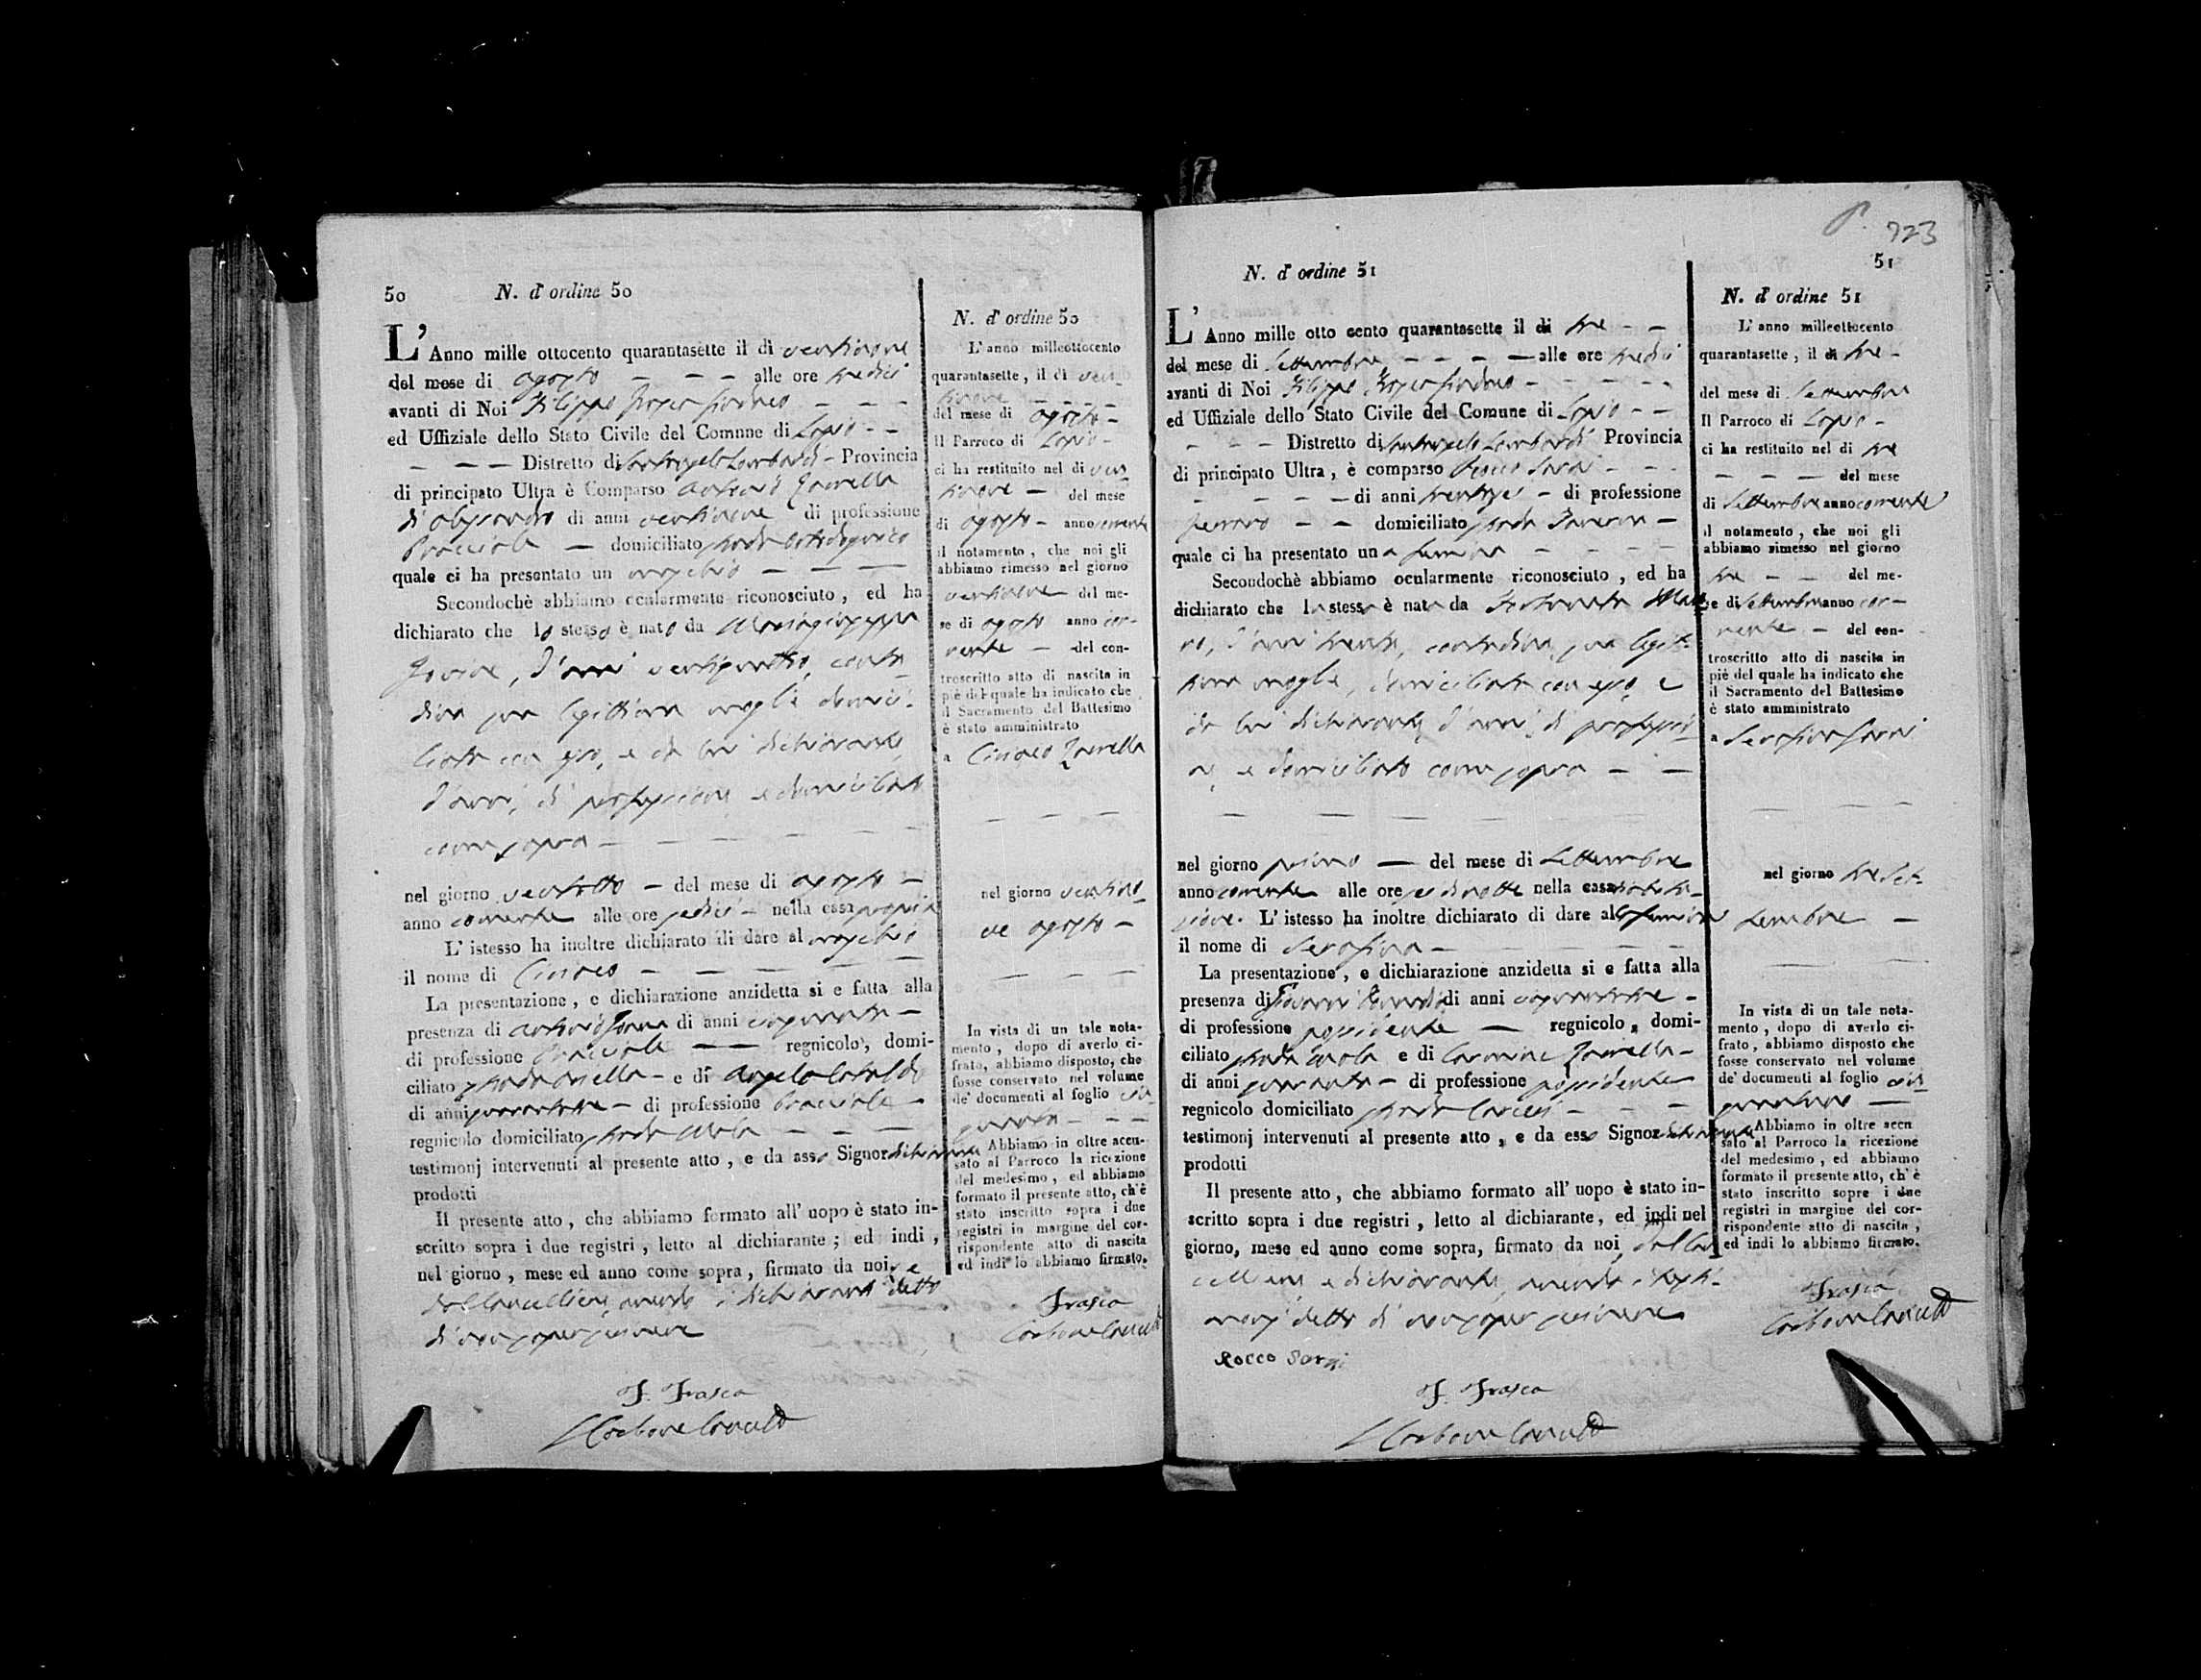 50 N. d'ordine 50
L'Anno mille ottocento quarantasette il dì ventinove
del mese di agosto — — — alle ore tredici
avanti di Noi Filippo Frasca Sindaco — — —
ed Uffiziale dello Stato Civile del Comnne di Lapio - -
— — — Distretto di Santangelo Lombardi - Provincia
di principato Ultra è Comparso Antonio Zarrella
di Alessandro di anni ventinove di professione
Bracciale — domiciliato strada
quale ci ha presentato un maschio — — —
Secondochè abbiamo ocularmente riconosciuto, ed ha
dichiarato che lo stesso è nato da Mariagiuseppa
d'anni ventiquattro, conta
dina sua legittima moglie domici-
liata con esso, e da lui dichiarante,
d'anni, di professione e domiciliato
come sopra — — — — —
nel giorno ventotto — del mese di agosto —
anno corrente alle ore sedici — nella casa propria
L'istesso ha inoltre dichiarato di dare al maschio
il nome di Ciriaco — — — — —
La presentazione, e dichiarazione anzidetta si e fatta alla
presenza di Antonio di anni cinquanta —
di professione Bracciale — — regnicolo, domi-
ciliato strada — e di Angelo Cataldo
di anni quarantatre — di professione Bracciale —
regnicolo domiciliato strada — — —
testimonj intervenuti al presente atto, e da asso Signor dichiarante
prodotti
Il presente atto, che abbiamo formato all'uopo è stato in-
scritto sopra i due registri, letto al dichiarante; ed indi,
nel giorno, mese ed anno come sopra, firmato da noi, e
dal Cancelliere, avendo i dichiaranti detto
di non saper scrivere
F. Frasca
Carbone Cancell
N. d'ordine 50
L'anno milleottocento
quarantasette, il dì ven-
tinove — — — —
del mese di agosto —
Il Parroco di Lapio -
ci ha restituito nel di ven
tinove — del mese
di agosto - anno corrente
il notamento, che noi gli
abbiamo rimesso nel giorno
ventinove del me-
se di agosto anno cor-
rente — del con-
troscritto atto di nascita in
piè del quale ha indicato che
il Sacramento del Battesimo
è stato amministrato
a Ciriaco Zarrella
— — —
nel giorno ventino-
ve agosto —
— — —
In vista di un tale nota-
mento, dopo di averlo ci-
frato, abbiamo disposto, che
fosse conservato nel volume
de' documenti al foglio cin
quanta — — —
Abbiamo in oltre accu-
sato al Parroco la ricezione
del medesimo, ed abbiamo
formato il presente atto, ch'è
stato inscritto sopra i due
registri in margine del cor-
rispondente atto di nascita
ed indi lo abbiamo firmato.
Frasca
Carbone Cancell
P. 723
51
N. d'ordine 51
L'Anno mille otto cento quarantasette il dì tre - —
del mese di Settembre — — — — alle ore tredici
avanti di Noi Filippo Frasca Sindaco — — — — —
ed Uffiziale dello Stato Civile del Comune di Lapio - —
— — — Distretto di Santangelo Lombardi Provincia
di principato Ultra, è comparso Rocco Sarni — — —
— — — — di anni trentasei — di professione
Ferraro — — domiciliato strada —
quale ci ha presentato una femina — — — —
Secondochè abbiamo ocularmente riconosciuto, ed ha
dichiarato che la stessa è nata da Fortunata
ro, d'anni trenta, contadina, sua legit-
tima moglie, domiciliata con esso, e
da lui dichiarante, d'anni, di professio-
ne, e domiciliato come sopra — —
— — — — — —
nel giorno primo — del mese di Settembre
anno corrente alle ore sei di notte nella casa
L'istesso ha inoltre dichiarato di dare alla femina
il nome di Serafina — — — — —
La presentazione, e dichiarazione anzidetta si e fatta alla
presenza di Giovanni di anni cinquantatre —
di professione possidente — regnicolo, domi-
ciliato strada e di Carmine Zarrella —
di anni quaranta — di professione possidente
regnicolo domiciliato strada — — —
testimonj intervenuti al presente atto, e da esso Signor dichiarante
prodotti
Il presente atto, che abbiamo formato all'uopo è stato in-
scritto sopra i due registri, letto al dichiarante, ed indi nel
giorno, mese ed anno come sopra, firmato da noi, dal Can
celliere e dichiarante, avendo i testi-
monj detto di non saper scrivere
Rocco Sarni
F. Frasca
Carbone Cancell
N. d'ordine 51
L'anno milleottocento
quarantasette, il dì tre —
del mese di Settembre
Il Parroco di Lapio —
ci ha restituito nel di tre
— — — del mese
di Settembre anno corrente
il notamento, che noi gli
abbiamo rimesso nel giorno
tre — — del me-
se di Settembre anno cor—
rente — del con-
troscritto atto di nascita in
piè del quale ha indicato che
il Sacramento del Battesimo
è stato amministrato
a Serafina Sarni
— — —
nel giorno tre Set-
tembre —
— — —
In vista di un tale nota-
mento, dopo di averlo ci-
frato, abbiamo disposto che
fosse conservato nel volume
de' documenti al foglio cin
quantuno —
Abbiamo in oltre accu
sato al Parroco la ricezione
del medesimo, ed abbiamo
formato il presente atto, ch'è
stato inscritto sopra i due
registri in margine del cor-
rispondente atto di nascita,
ed indi lo abbiamo firmato.
Frasca
Carbone Cancell